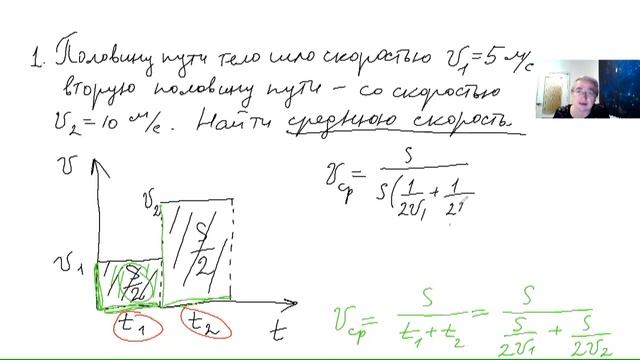 1. Половину пути тело шло скоростью v₁=5 м/с
вторую половину пути – со скоростью
v₂=10 м/с. Найти среднюю скорость.
v
v₂
v₁
S/2
S/2
t₁
t₂
t
v_ср = S / S(1/2v₁ + 1/2
v_ср = S / t₁+t₂ = S / S/2v₁ + S/2v₂